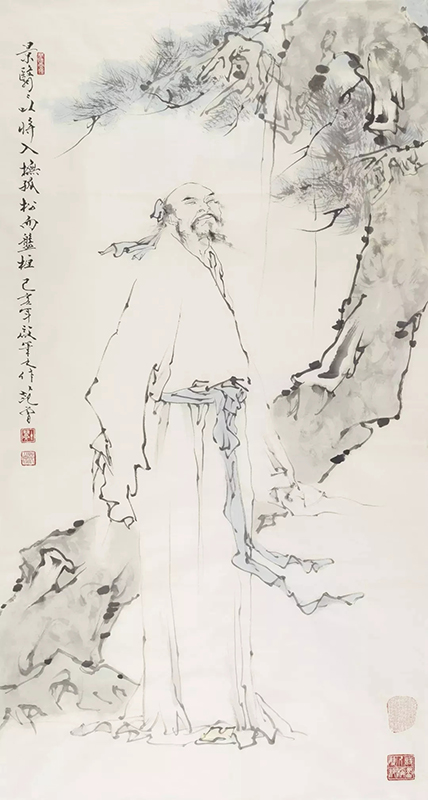 景翳〻以將入撫孤松而盤桓己亥年啟筆之作范